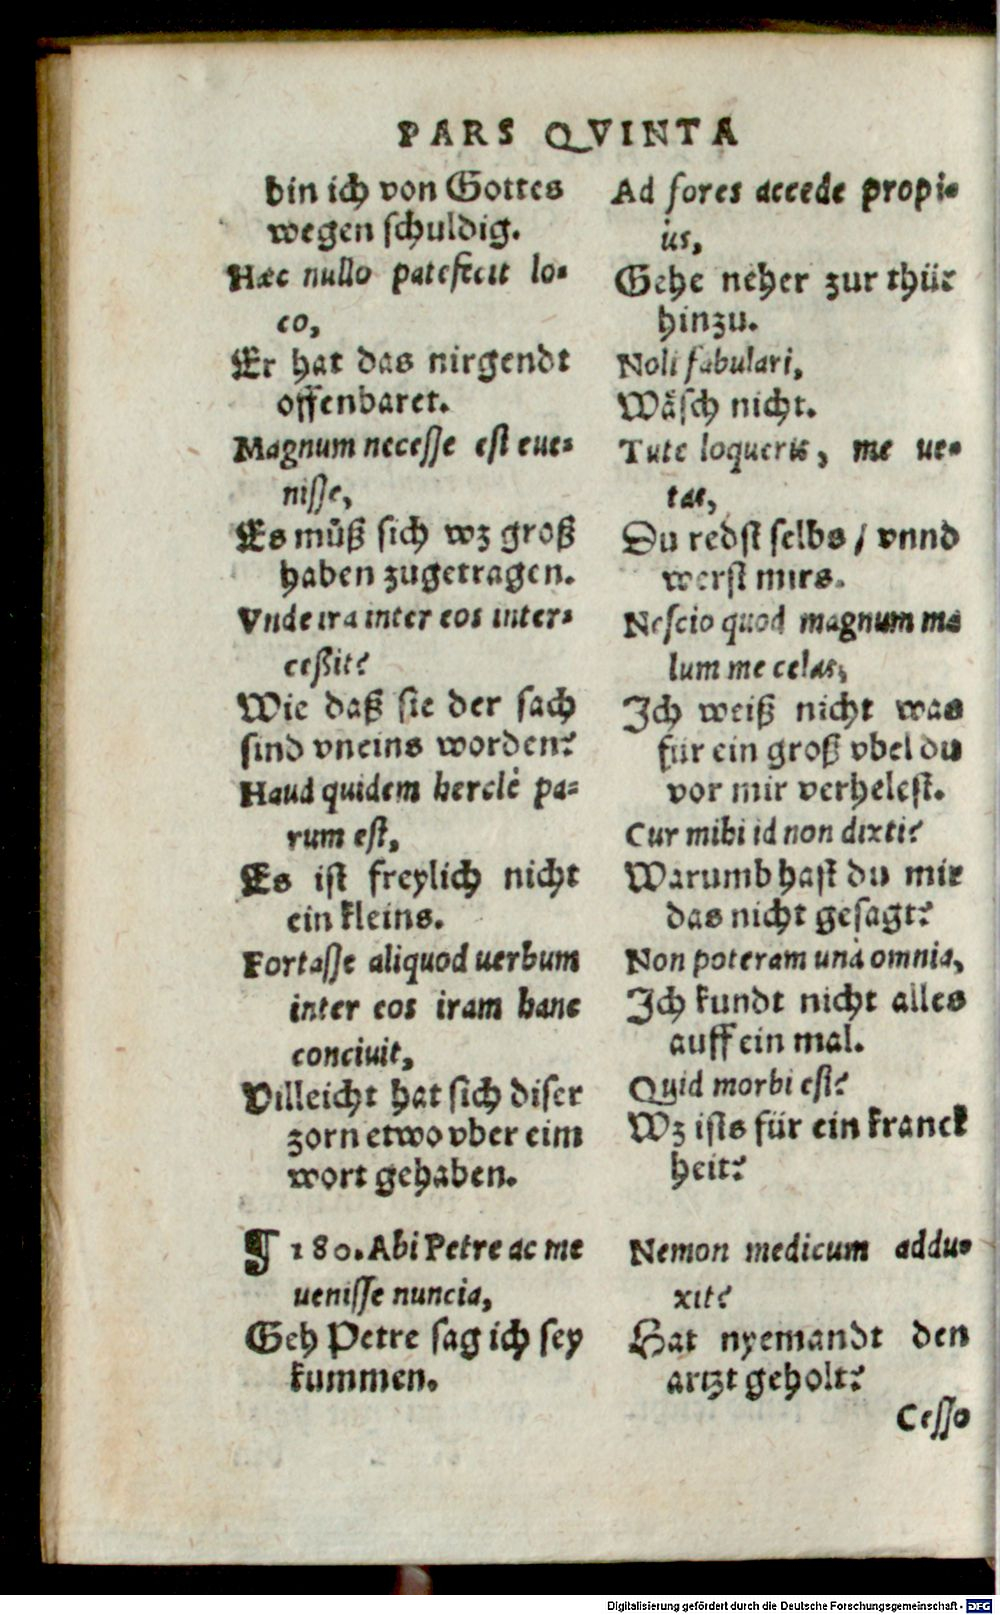 PARS QVINTA
bin ich von Gottes
wegen schuldig.
Hæc nullo patefecit lo-
co,
Er hat das nirgendt
offenbaret.
Magnum necesse est eue-
nisse,
Es můß sich wz groß
haben zugetragen.
Vnde ira inter eos inter-
ceßit?
Wie daß sie der sach
sind vneins worden?
Haud quidem herclè pa-
rum est,
Es ist freylich nicht
ein kleins.
Fortasse aliquod uerbum
inter eos iram hanc
conciuit,
Villeicht hat sich diser
zorn etwo vber eim
wort gehaben.
¶ 180. Abi Petre ac me
uenisse nuncia,
Geh Petre sag ich sey
kummen.
Ad fores accede propi-
us,
Gehe neher zur thür
hinzu.
Noli fabulari,
Wäsch nicht.
Tute loqueris, me ue-
tas,
Du redst selbs / vnnd
werst mirs.
Nescio quod magnum ma
lum me celas,
Ich weiß nicht was
für ein groß vbel du
vor mir verhelest.
Cur mihi id non dixti?
Warumb hast du mir
das nicht gesagt?
Non poteram unà omnia,
Ich kundt nicht alles
auff ein mal.
Quid morbi est?
Wz ists für ein kranck
heit?
Nemon medicum addu-
xit?
Hat nyemandt den
artzt geholt?
Cesso
Digitalisierung gefördert durch die Deutsche Forschungsgemeinschaft - DFG